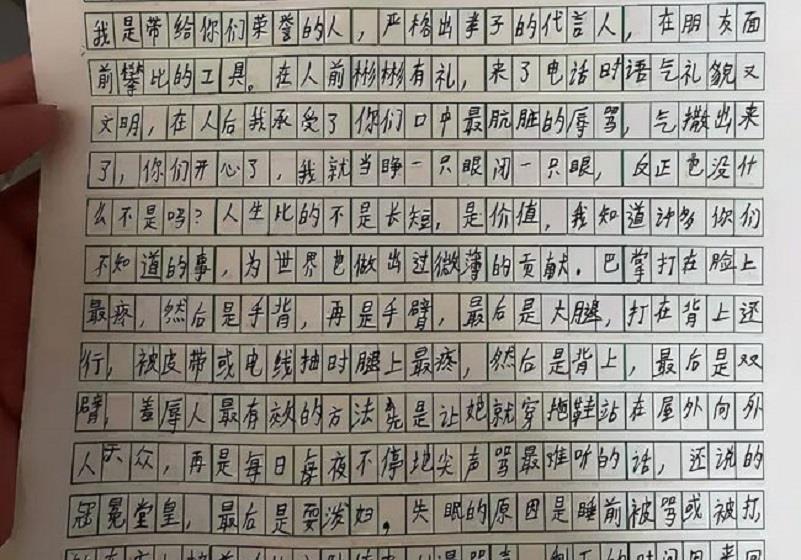 我是带给你们荣誉的人，严格出孝子的代言人，在朋友面
前攀比的工具。在人前彬彬有礼，来了电话时语气礼貌又
文明，在人后我承受了你们口中最肮脏的辱骂，气撒出来
了，你们开心了，我就当睁一只眼闭一只眼，反正也没什
么不是吗？人生比的不是长短，是价值，我知道许多你们
不知道的事，为世界也做出过微薄的贡献。巴掌打在脸上
最疼，然后是手背，再是手臂，最后是大腿，打在背上还
行，被皮带或电线抽时腿上最疼，然后是背上，最后是双
臂，羞辱人最有效的方法竟是让她就穿拖鞋站在屋外向外
人示众，再是每日每夜不停地尖声骂最难听的话，还说的
冠冕堂皇，最后是耍泼妇。失眠的原因是睡前被骂或被打